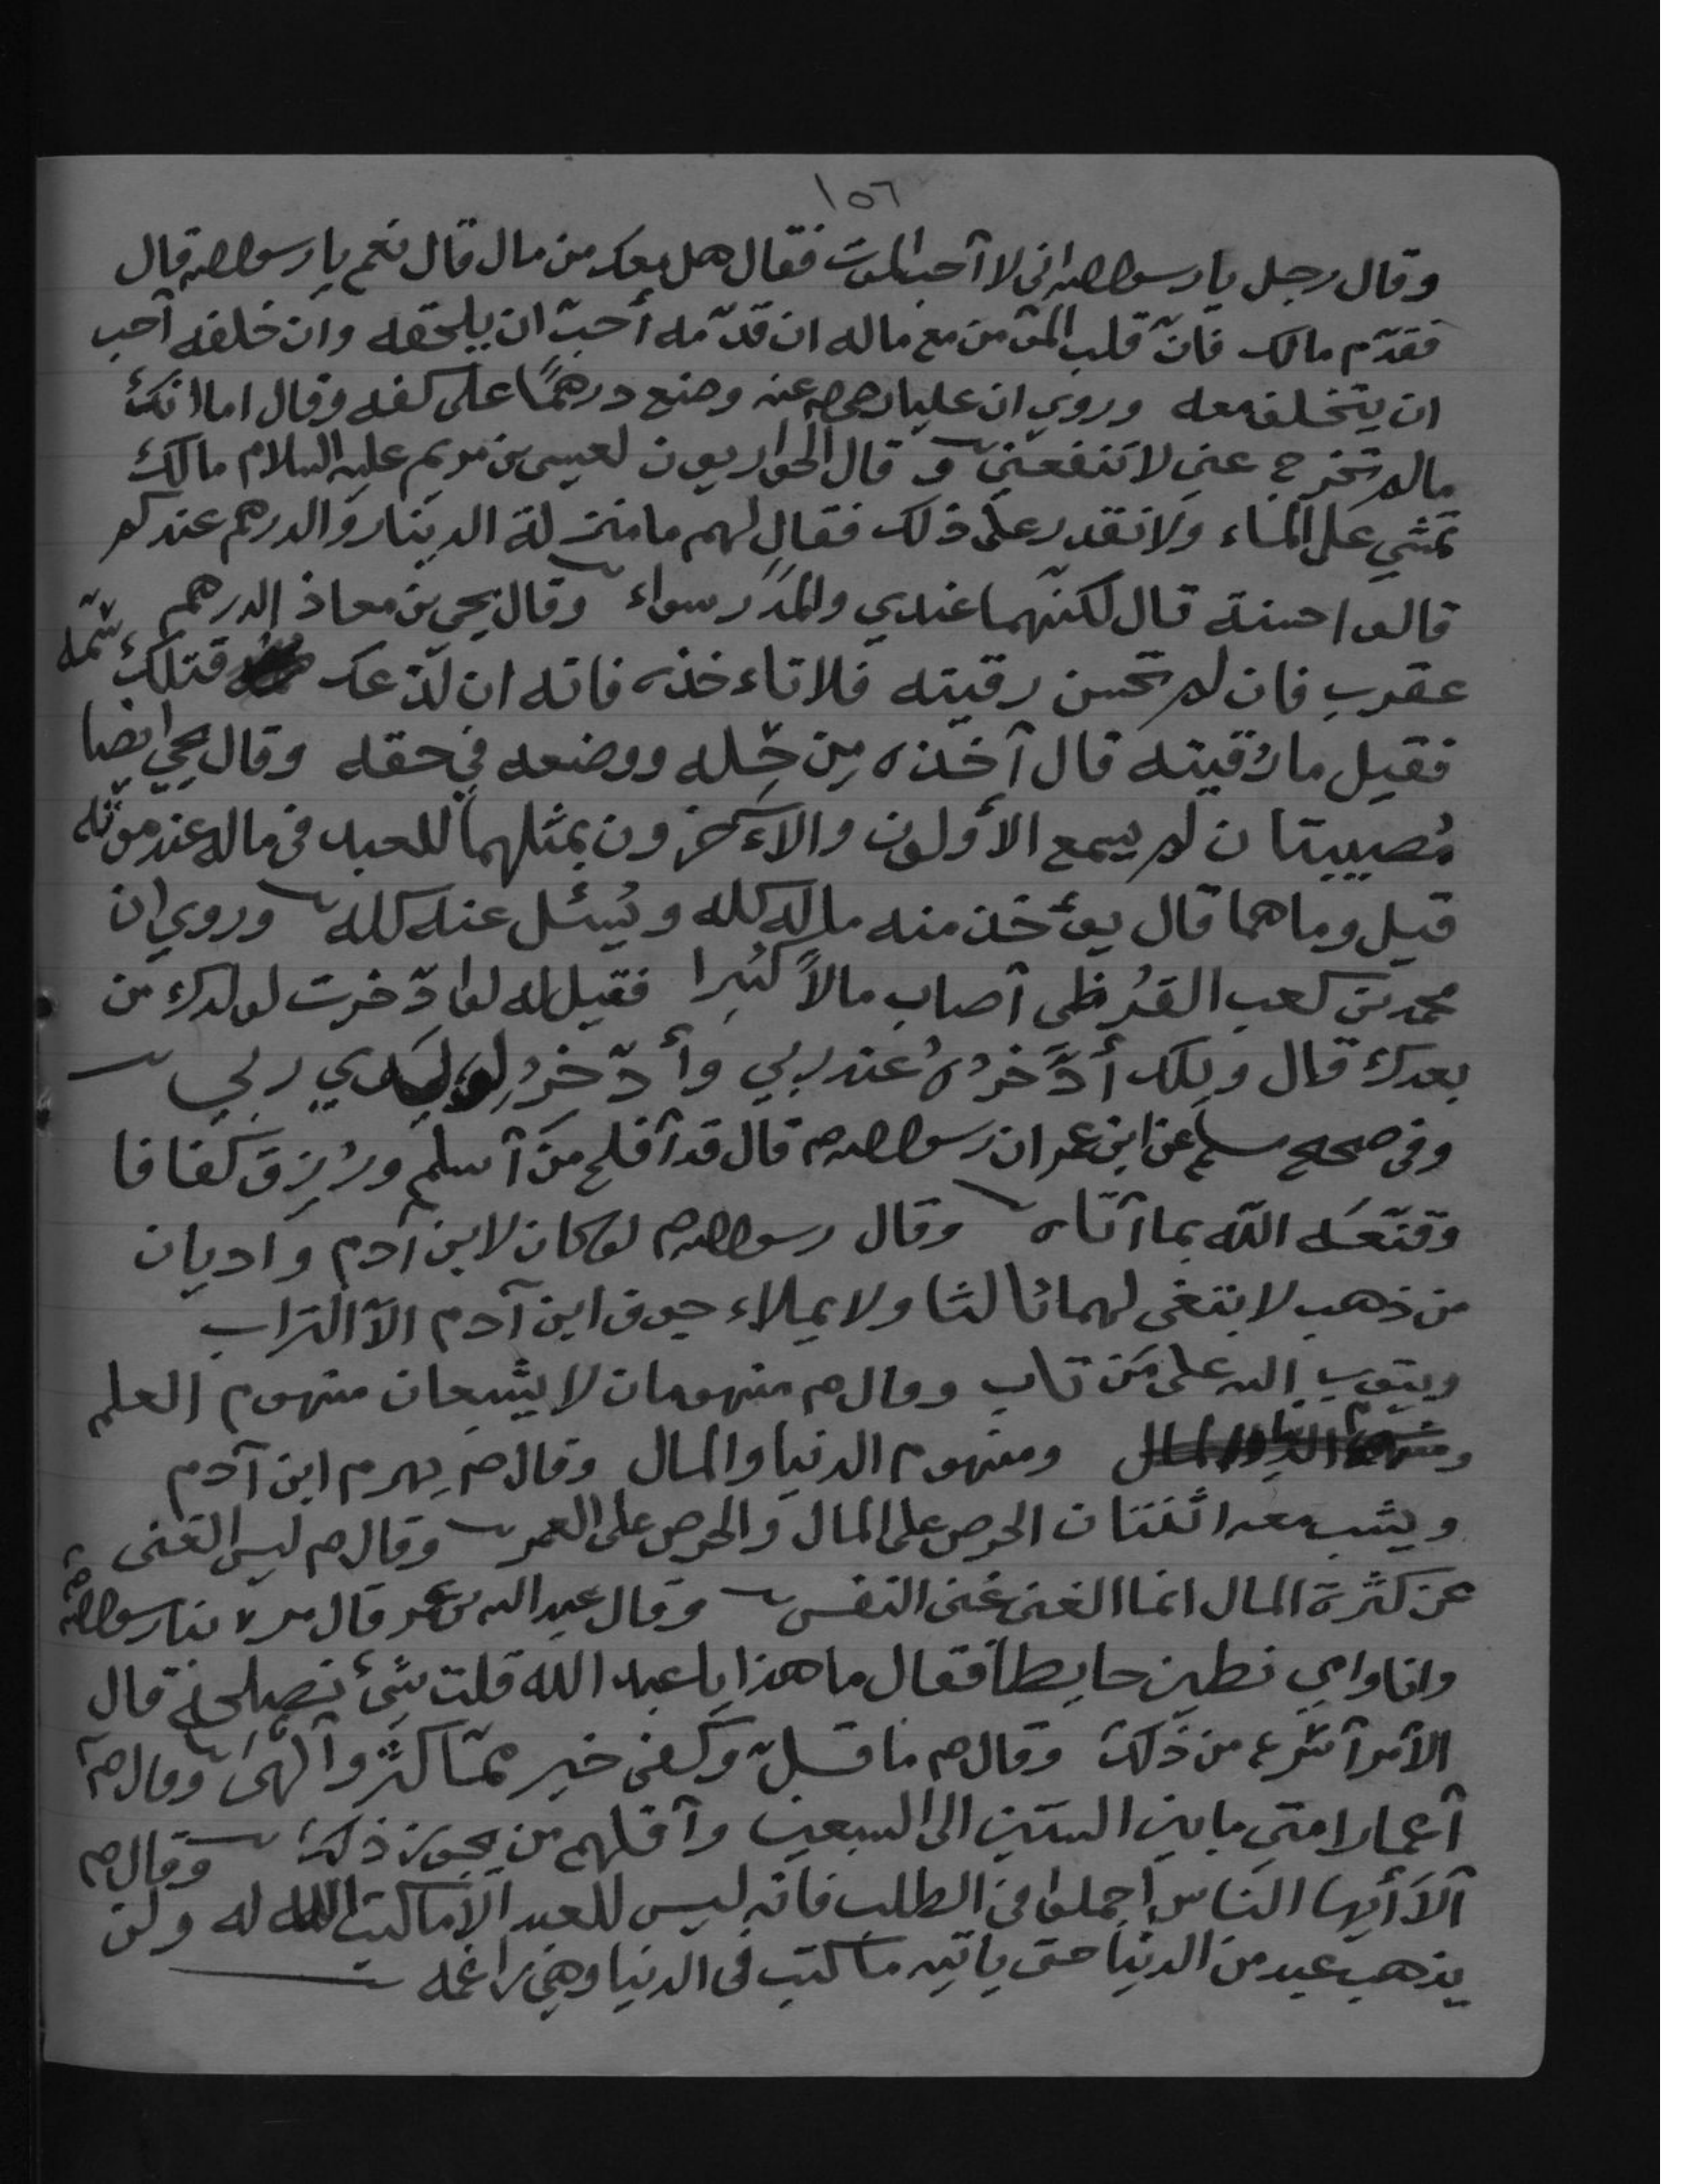 ١٥٦
وقال رجل يا رسول الله اني لا أحب الموت فقال هل معك من مال قال نعم يا رسول الله قال
فقدّم مالك فانّ قلب المؤمن مع ماله ان قدّمه أحبّ ان يلحقه وان خلفه أحب
ان يتخلف معه وروي ان عليا رضي الله عنه وضع درهمًا على كفه وقال اما انك
مالم تخرج عني لا تنفعني و قال الحواريون لعيسى بن مريم عليه السلام مالك
تمشي على الماء ولا نقدر على ذلك فقال لهم ما منزلة الدينار والدرهم عندكم
قالوا حسنة قال لكنّهما عندي والمدَر سواء وقال يحيى بن معاذ الدرهم
عقرب فان لم تحسن رقيته فلا تاءخذه فانه ان لدّعك قتلك سمّه
فقيل ما رُقيته قال آخذه مِن حِلّه ووضعه في حقه وقال يحيى ايضا
مُصيبتان لم يسمع الأولون والاءخرون بمثلهما للعبد في ماله عند موته
قيل وما هما قال يوءخذ منه ماله كله ويُسئل عنه كله وروي ان
محمد بن كعب القُرظي أصاب مالاً كثيرا فقيل له لو ادّخرت لولدك من
بعدك قال ويلك أدَّخرُهُ عند ربي وأدّخرُ لِوَلَدي ربي
وفي صحيح مسلم عن ابن عمر ان رسول الله ص قال قد أفلح مَن أسلم ورُزِق كفافا
وقنّعَه اللّه بما آتاه وقال رسول الله ص لو كان لابن آدم واديان
من ذهب لابتغى لهما ثالثا ولا يملاء جوف ابن آدم الاّ التراب
ويتوب الله على مَن تاب وقال ص منهومان لا يشبعان منهوم العلم
ومنهوم الدنيا والمال وقال ص يهرم ابن آدم
ويشب معه اثنتان الحرص على المال والحرص على العمر وقال ص ليس الغنى
عن كثرة المال انما الغنى غنى النفس وقال عبد الله بن عمر قال مر بنا رسول الله ص
وانا وامي نطين حايطاً فقال ما هذا يا عبد الله قلت شيء نصلحه قال
الأمر أسرع من ذلك وقال ص ما قلّ وكفى خير ممّا كثر وألهى وقال ص
أعمار امتي ما بين الستين الى السبعين وأقلهم من يجوز ذلك وقال ص
ألاَ أيها الناس اجملوا في الطلب فانه ليس للعبد الاّ ما كتب الله له ولن
يذهب عبد من الدنيا حتى ياتيه ما كتب في الدنيا وهي راغمه